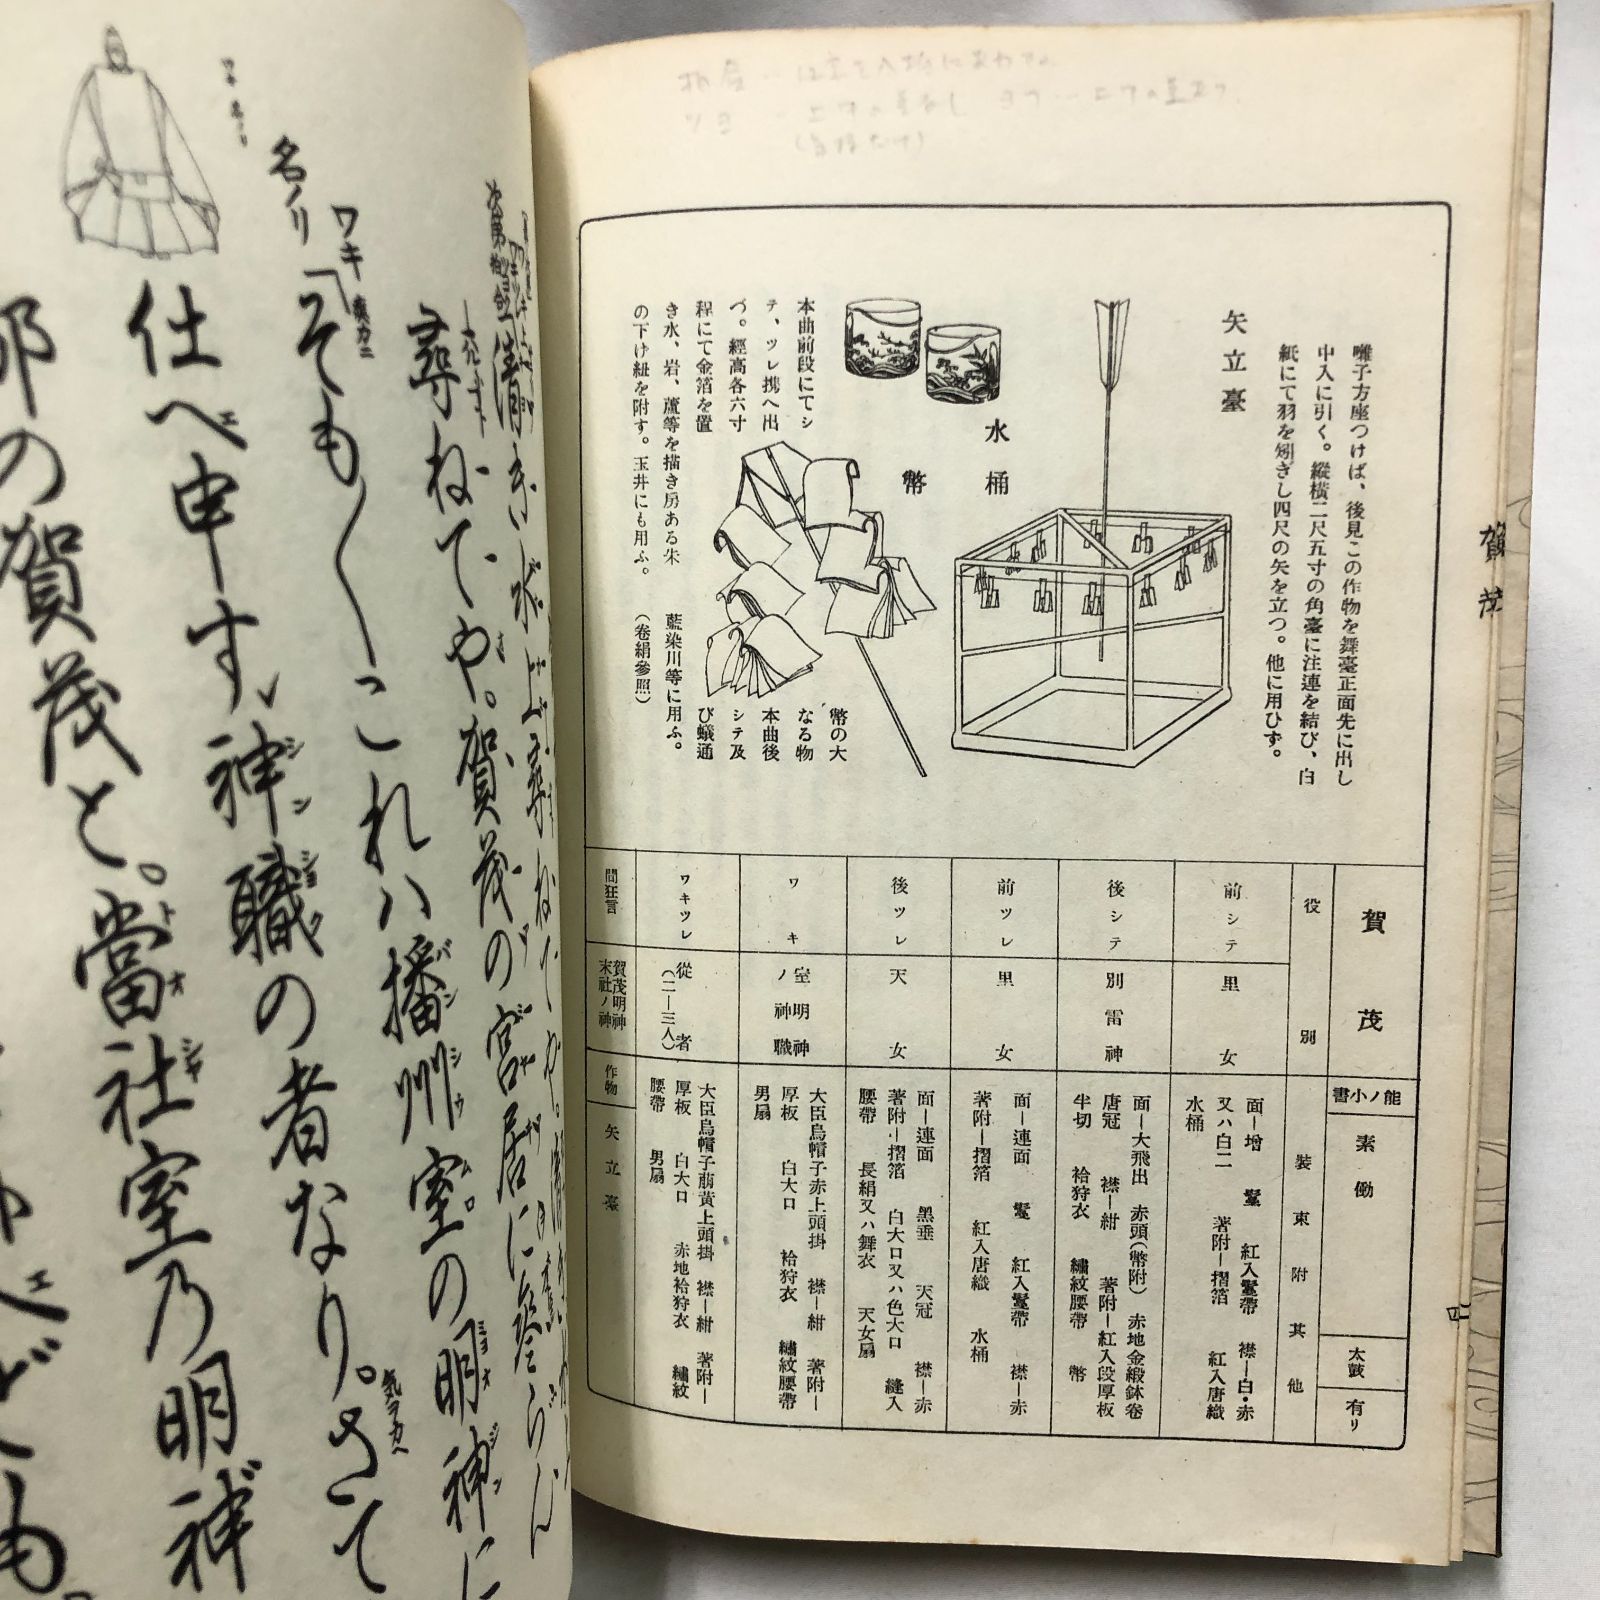 賀茂
囃子方座つけば、後見この作物を舞臺正面先に出し
中入に引く。縱橫二尺五寸の角臺に注連を結び、白
紙にて羽を矧ぎし四尺の矢を立つ。他に用ひず。
矢立臺
水桶
幣
本曲前段にてシ
テ、ツレ携へ出
づ。經高各六寸
程にて金箔を置
き水、岩、蘆等を描き房ある朱
の下け紐を附す。玉井にも用ふ。
幣の大
なる物
本曲後
シテ及
び蟻通
藍染川等に用ふ。
(卷絹參照)
賀茂
能ノ小書
素働
太鼓
有リ
役別
裝束附其他
前シテ
里女
面—增 鬘 紅入鬘帶 襟—白・赤
又ハ白二 著附—摺箔 紅入唐織
水桶
後シテ
別雷神
面—大飛出 赤頭(幣附) 赤地金緞鉢卷
唐冠 襟—紺 著附—紅入段厚板
半切 袷狩衣 繡紋腰帶 幣
前ツレ
里女
面—連面 鬘 紅入鬘帶 襟—赤
著附—摺箔 紅入唐織 水桶
後ツレ
天女
面—連面 黑垂 天冠 襟—赤
著附—摺箔 白大口又ハ色大口 縫入
腰帶 長絹又ハ舞衣 天女扇
ワキ
室明神
ノ神職
大臣烏帽子赤上頭掛 襟—紺 著附—
厚板 白大口 袷狩衣 繡紋腰帶
男扇
ワキツレ
從者
(二—三人)
大臣烏帽子萠黃上頭掛 襟—紺 著附—
厚板 白大口 赤地袷狩衣 繡紋
腰帶 男扇
間狂言
賀茂明神
末社ノ神
作物
矢立臺
次第
清き水上尋ねてや。
尋ねてや。賀茂の宮居に參らん
名ノリ
ワキ「そも〱これハ播州室の明神に
仕へ申す、神職の者なり。さて
の賀茂と。當社室乃明神